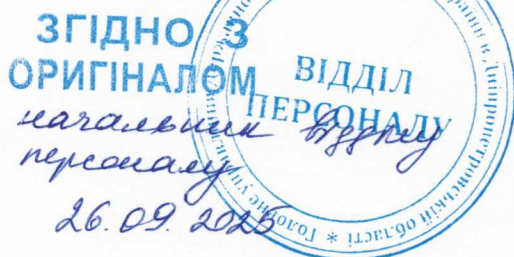 ЗГІДНО З
ОРИГІНАЛОМ
ВІДДІЛ
ПЕРСОНАЛУ
начальник відділу
персоналу
26.09.2025
Головне
Дніпропетровській області *